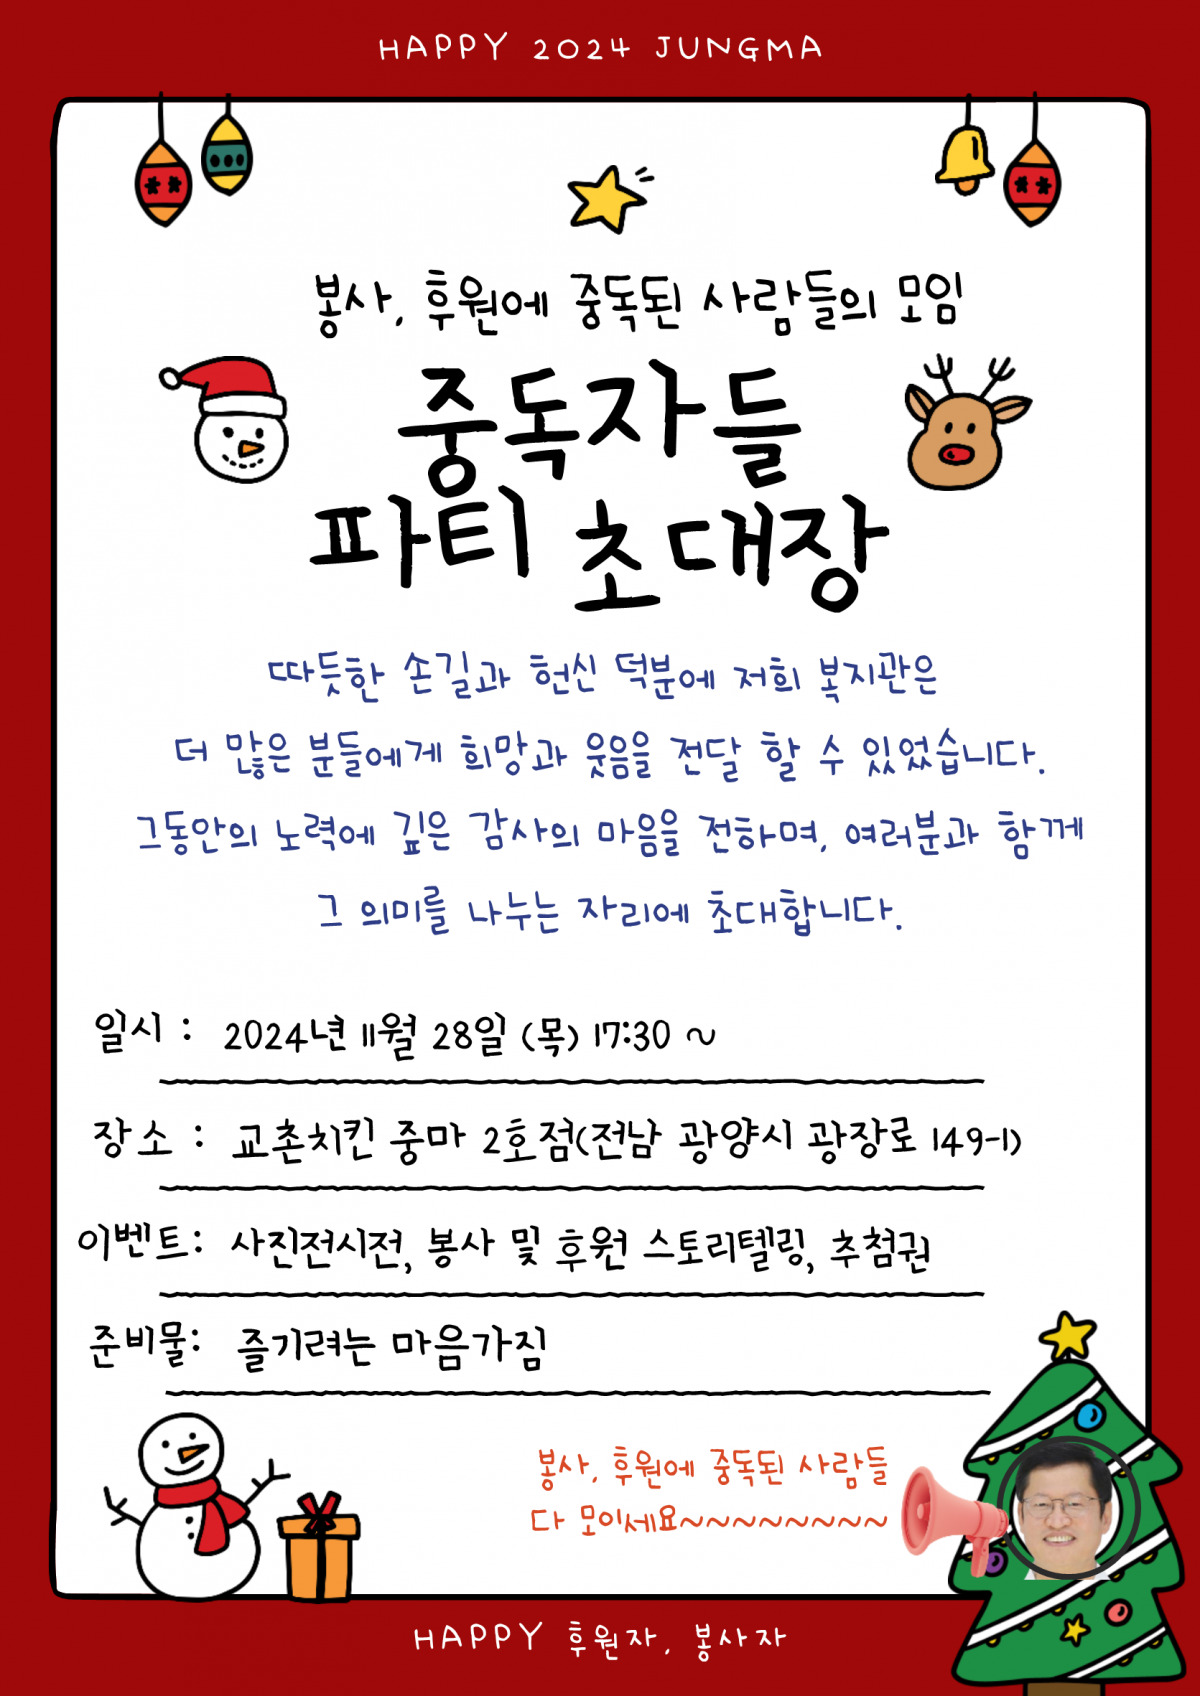 HAPPY 2024 JUNGMA
봉사, 후원에 중독된 사람들의 모임
중독자들
파티 초대장
따듯한 손길과 헌신 덕분에 저희 복지관은
더 많은 분들에게 희망과 웃음을 전달 할 수 있었습니다.
그동안의 노력에 깊은 감사의 마음을 전하며, 여러분과 함께
그 의미를 나누는 자리에 초대합니다.
일시 : 2024년 11월 28일 (목) 17:30 ~
장소 : 교촌치킨 중마 2호점(전남 광양시 광장로 149-1)
이벤트: 사진전시전, 봉사 및 후원 스토리텔링, 추첨권
준비물: 즐기려는 마음가짐
봉사, 후원에 중독된 사람들
다 모이세요~~~~~~~~~
HAPPY 후원자, 봉사자